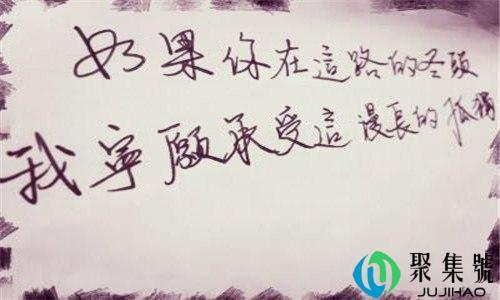 如果你在這路的尽頭
我寧願承受這漫長的孤獨
聚集號
JUJIHAO